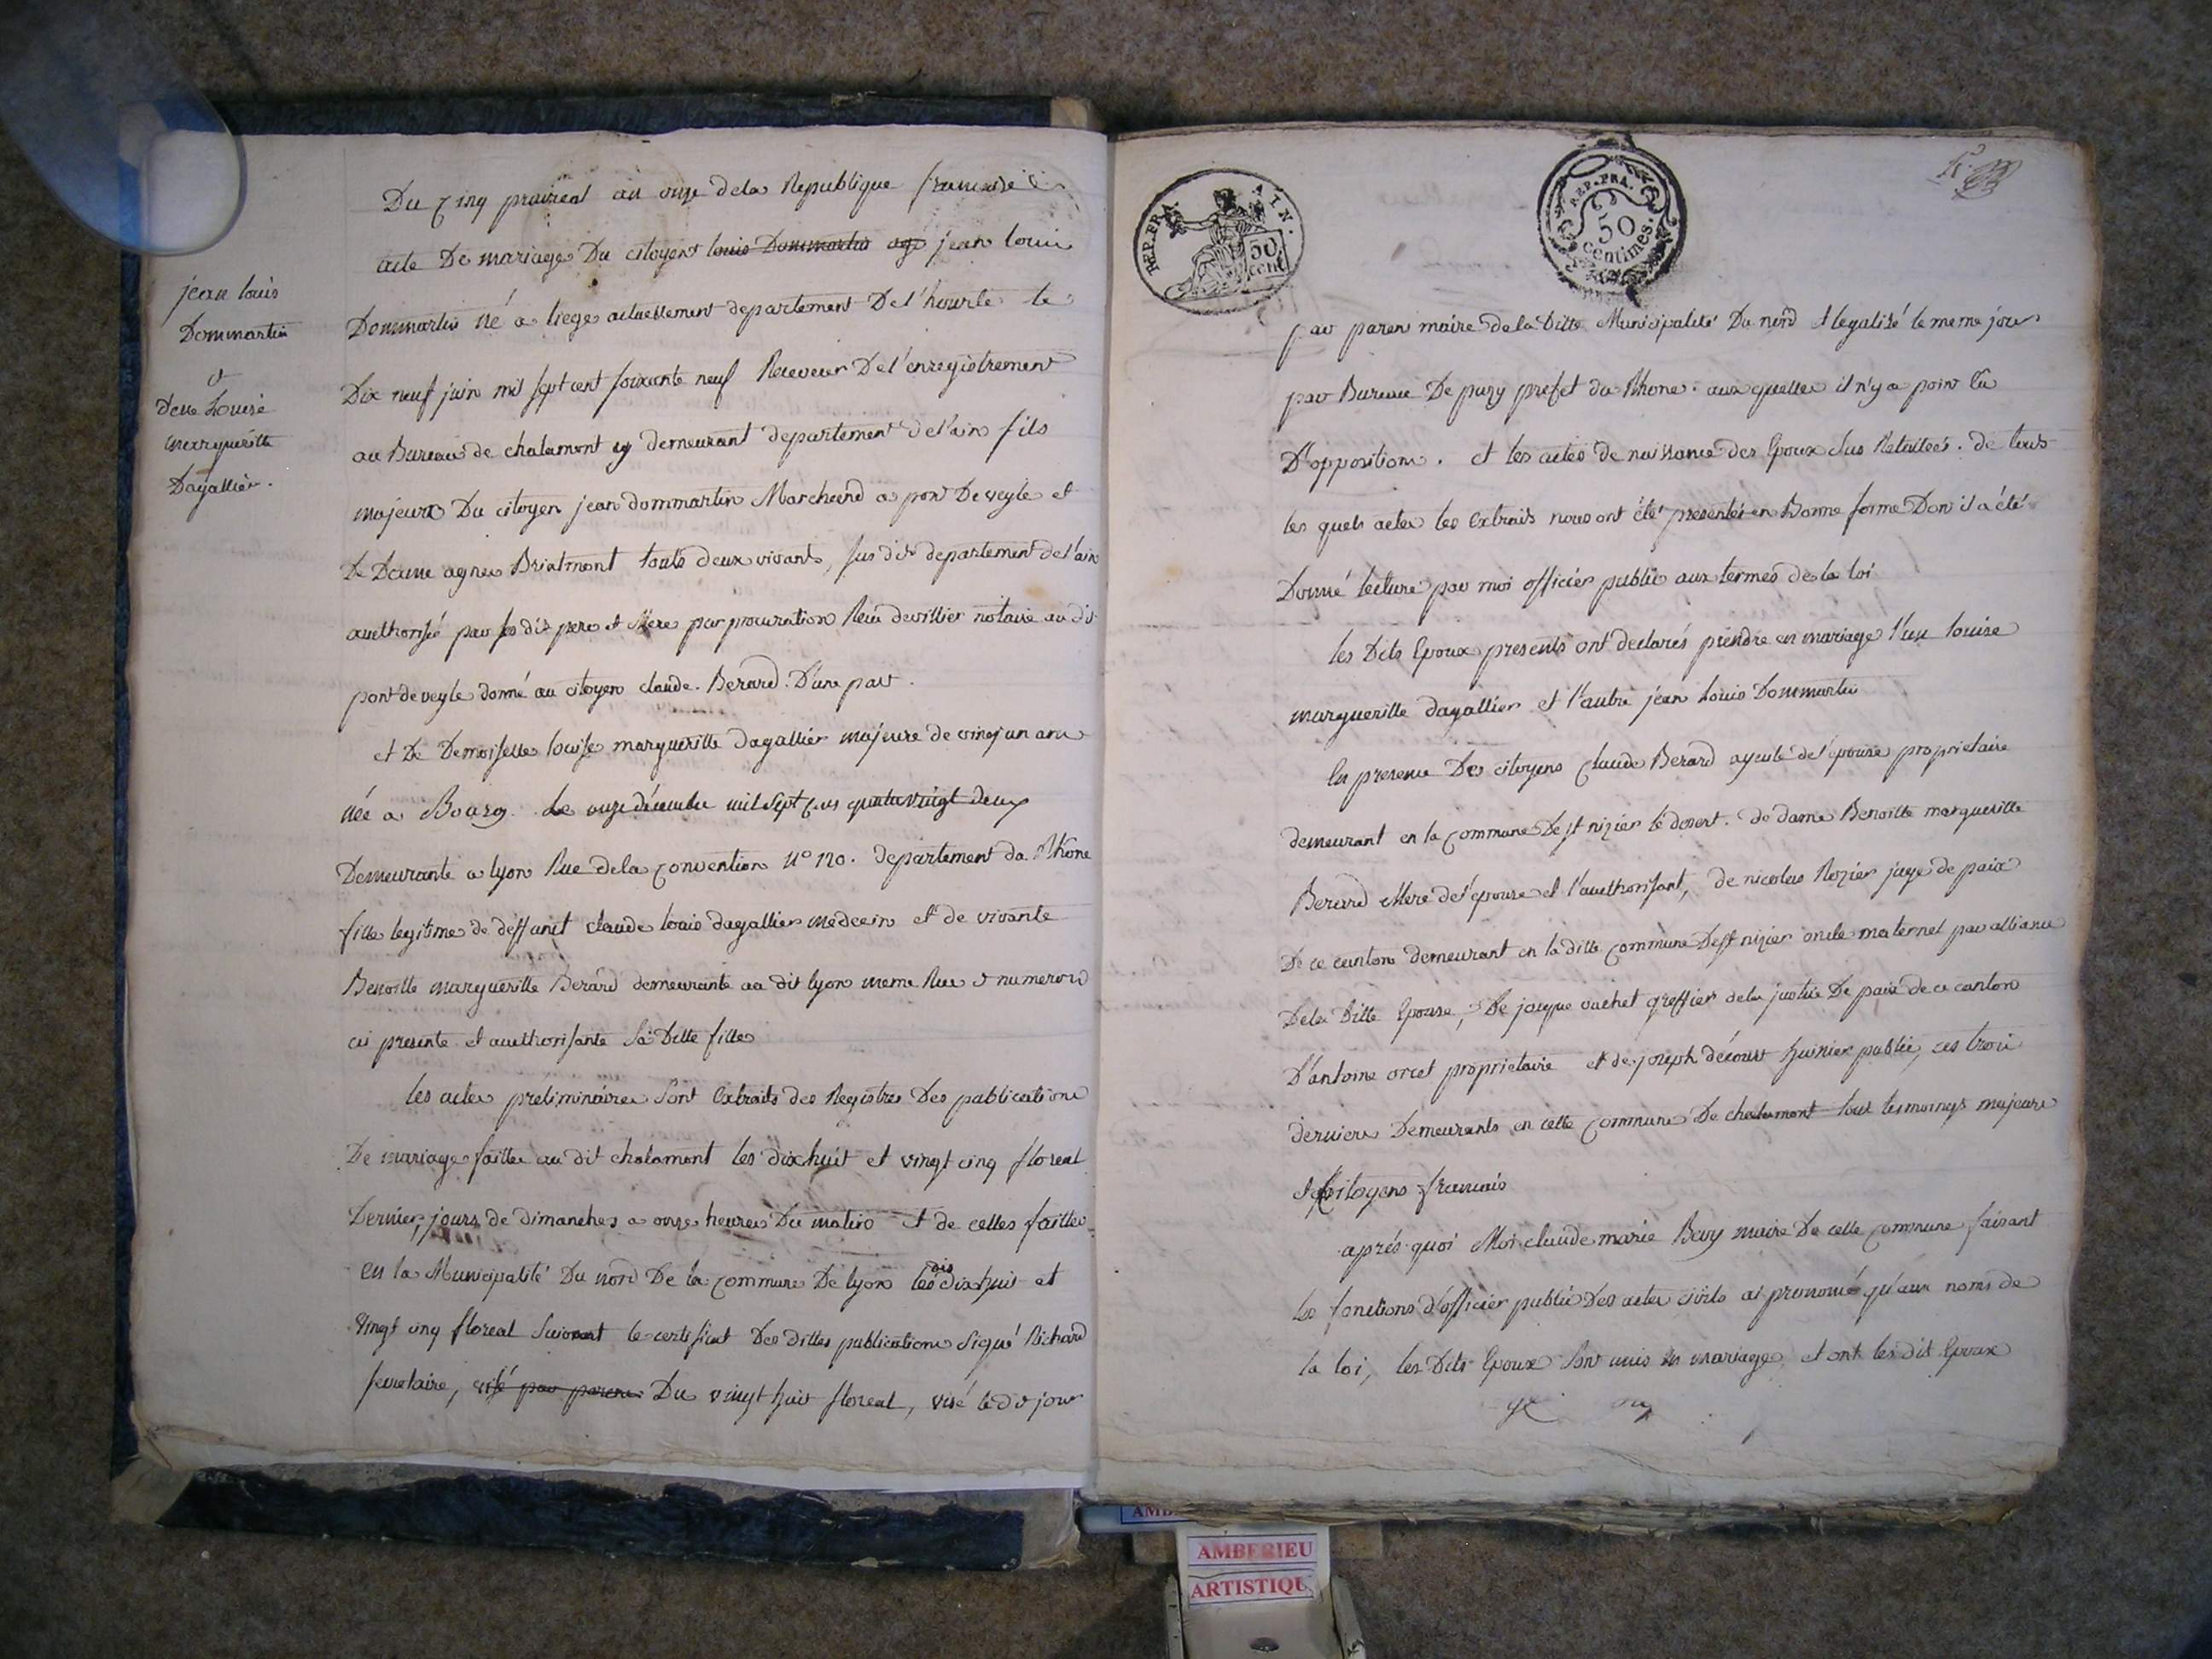 jean louis
Dommartin
et
Delle Louise
margueritte
Dagallier.
Du Cinq praireal an onze dela Republique francaise
acte De mariage Du citoyen louis Dommartin agé jean louis
Dommartin né a liege actuellement departement De l'hourte le
Dix neuf juin mil sept cent soixante neuf Receveur De l'enregistrement
au Bureau de chalamont y demeurant departement de l'ain fils
majeur Du citoyen jean dommartin Marchand a pont De veyle et
De Dame agnes Briatmont touts deux vivants, sus dit departement de l'ain
authorisé par ses dit pere et Mere par procuration Reçu devillier notaire au dit
pont de veyle donné au citoyen claude Berard. D'une part.
et De Demoiselle louise margueritte dagallier majeure de vingt un ans
née a Bourg le onze décembre mil sept cens quatre vingt deux
Demeurante a lyon Rue dela convention n° 120. departement du Rhone
fille legitime de deffunt claude louis dagallier medecin et de vivante
Benoitte margueritte Berard demeurante au dit lyon meme Rue et numero
ci presente et authorisante Sa Ditte fille
les actes preliminaires Sont Extraits des Registres Des publications
De mariage faittes au dit chalamont les dixhuit et vingt cinq floreal
Dernier, jours de dimanches a onze heures Du matin et de celles faittes
en la Municipalité Du nord De la commune De lyon les dis dixhuit et
vingt cinq floreal Suivant le certificat Des dittes publications Signé Richard
secretaire, visé par parent Du vingt huit floreal, visé le dt jour
REP. FRA. AIN.
50 cent
REP. FRA.
50
centimes.
par parent maire dela ditte Municipalité Du nord et legalisé le meme jour
par Bureau De puzy prefet du Rhone. aux quelles il n'y a point Eu
D'opposition. et les actes de naissance des Epoux Sus Relattées. de touts
les quels actes les Extraits nous ont été presentés en Bonne forme Dont il a été
Donné lecture par moi officier public aux termes de la loi
les Dits Epoux presents ont declarés prendre en mariage l'un louise
margueritte dagallier et l'autre jean louis Dommartin
En presence Des citoyens Claude Berard ayeul de l'epouse proprietaire
demeurant en la commune De st nizier le desert. de dame Benoitte margueritte
Berard Mere de l'epouse et l'authorisant, de nicolas Rozier juge de paix
De ce canton demeurant en la ditte commune De st nizier oncle maternel par alliance
Dela Ditte Epouse, De jacque vachet greffier dela justice De paix de ce canton
D'antoine orcet proprietaire et de joseph décourt huissier public, ces trois
derniers Demeurants en cette commune De chalamont tous temoings majeurs
et citoyens francais
après quoi Moi claude marie Bevy maire De cette commune faisant
les fonctions d'officier public Des actes civils ai prononcé qu'aux noms de
la loi, les Dits Epoux Sont unis en mariage, et ont les dit Epoux
AMBERIEU
ARTISTIQU